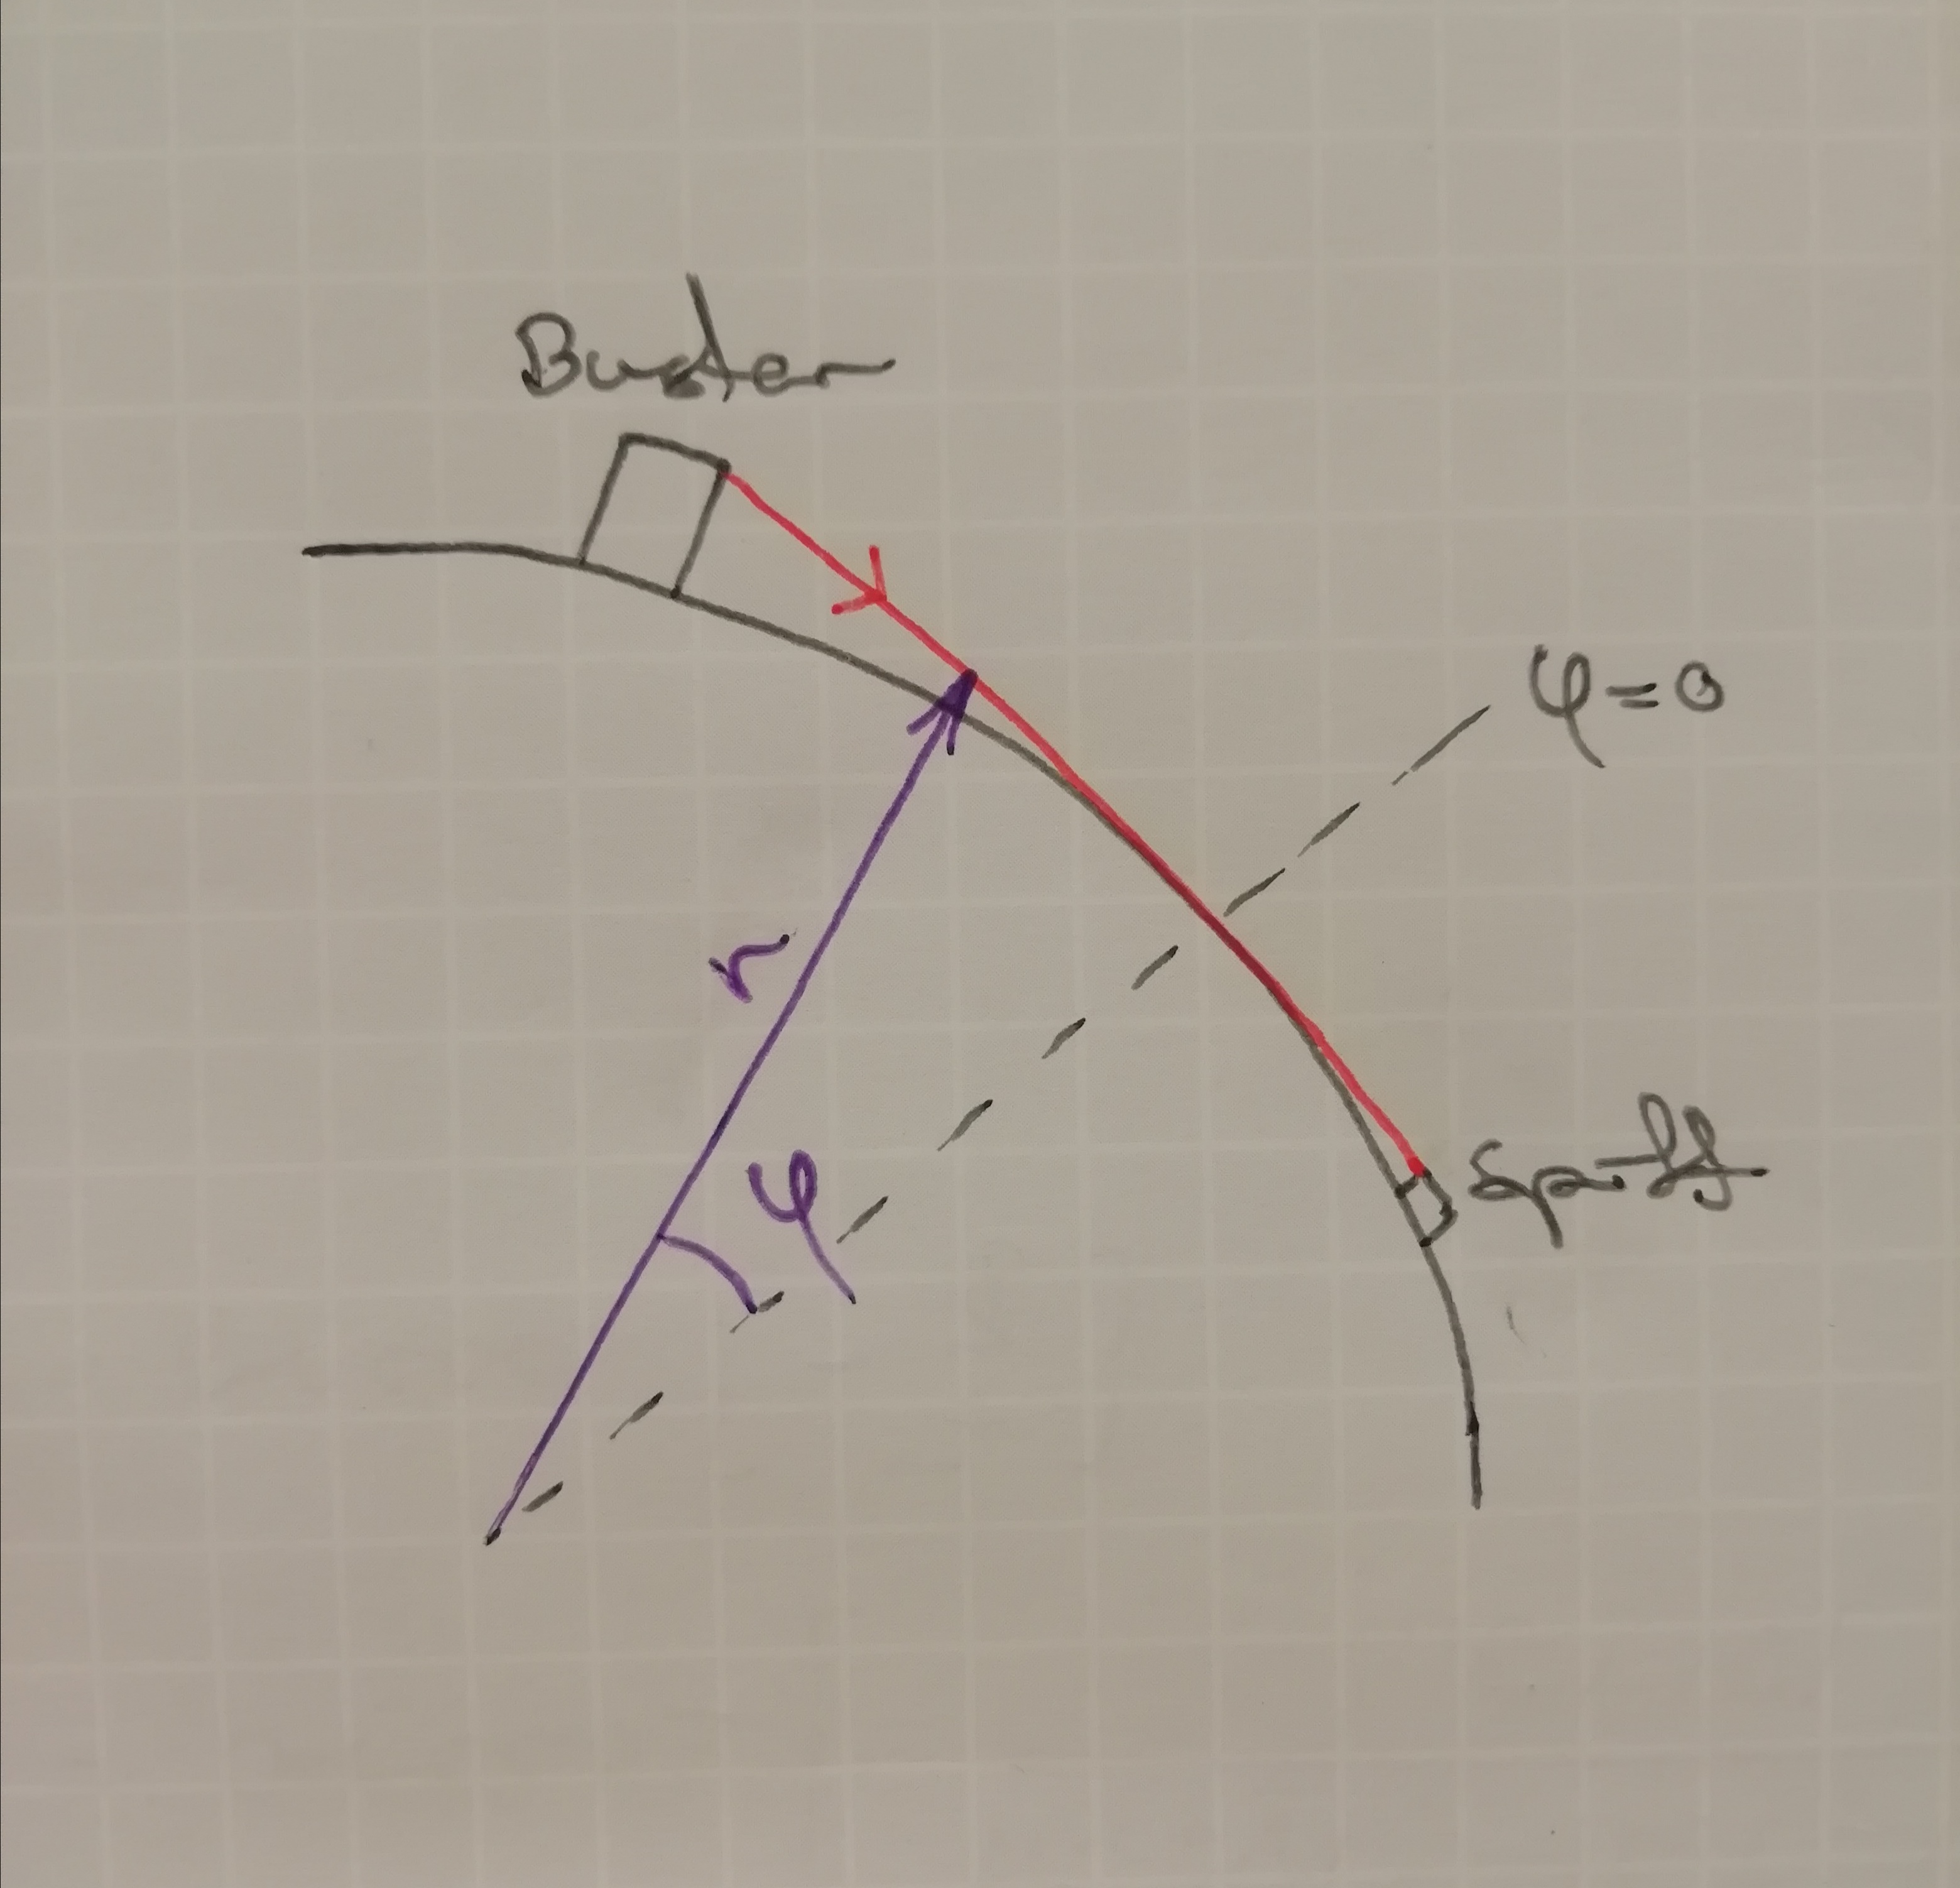 Buster
φ=0
r
φ
Spiff